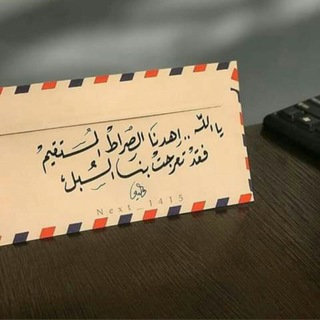 يا الله .. اهدنا الصراط المستقيم
فقد تعرجت بنا السبل
Next_1415